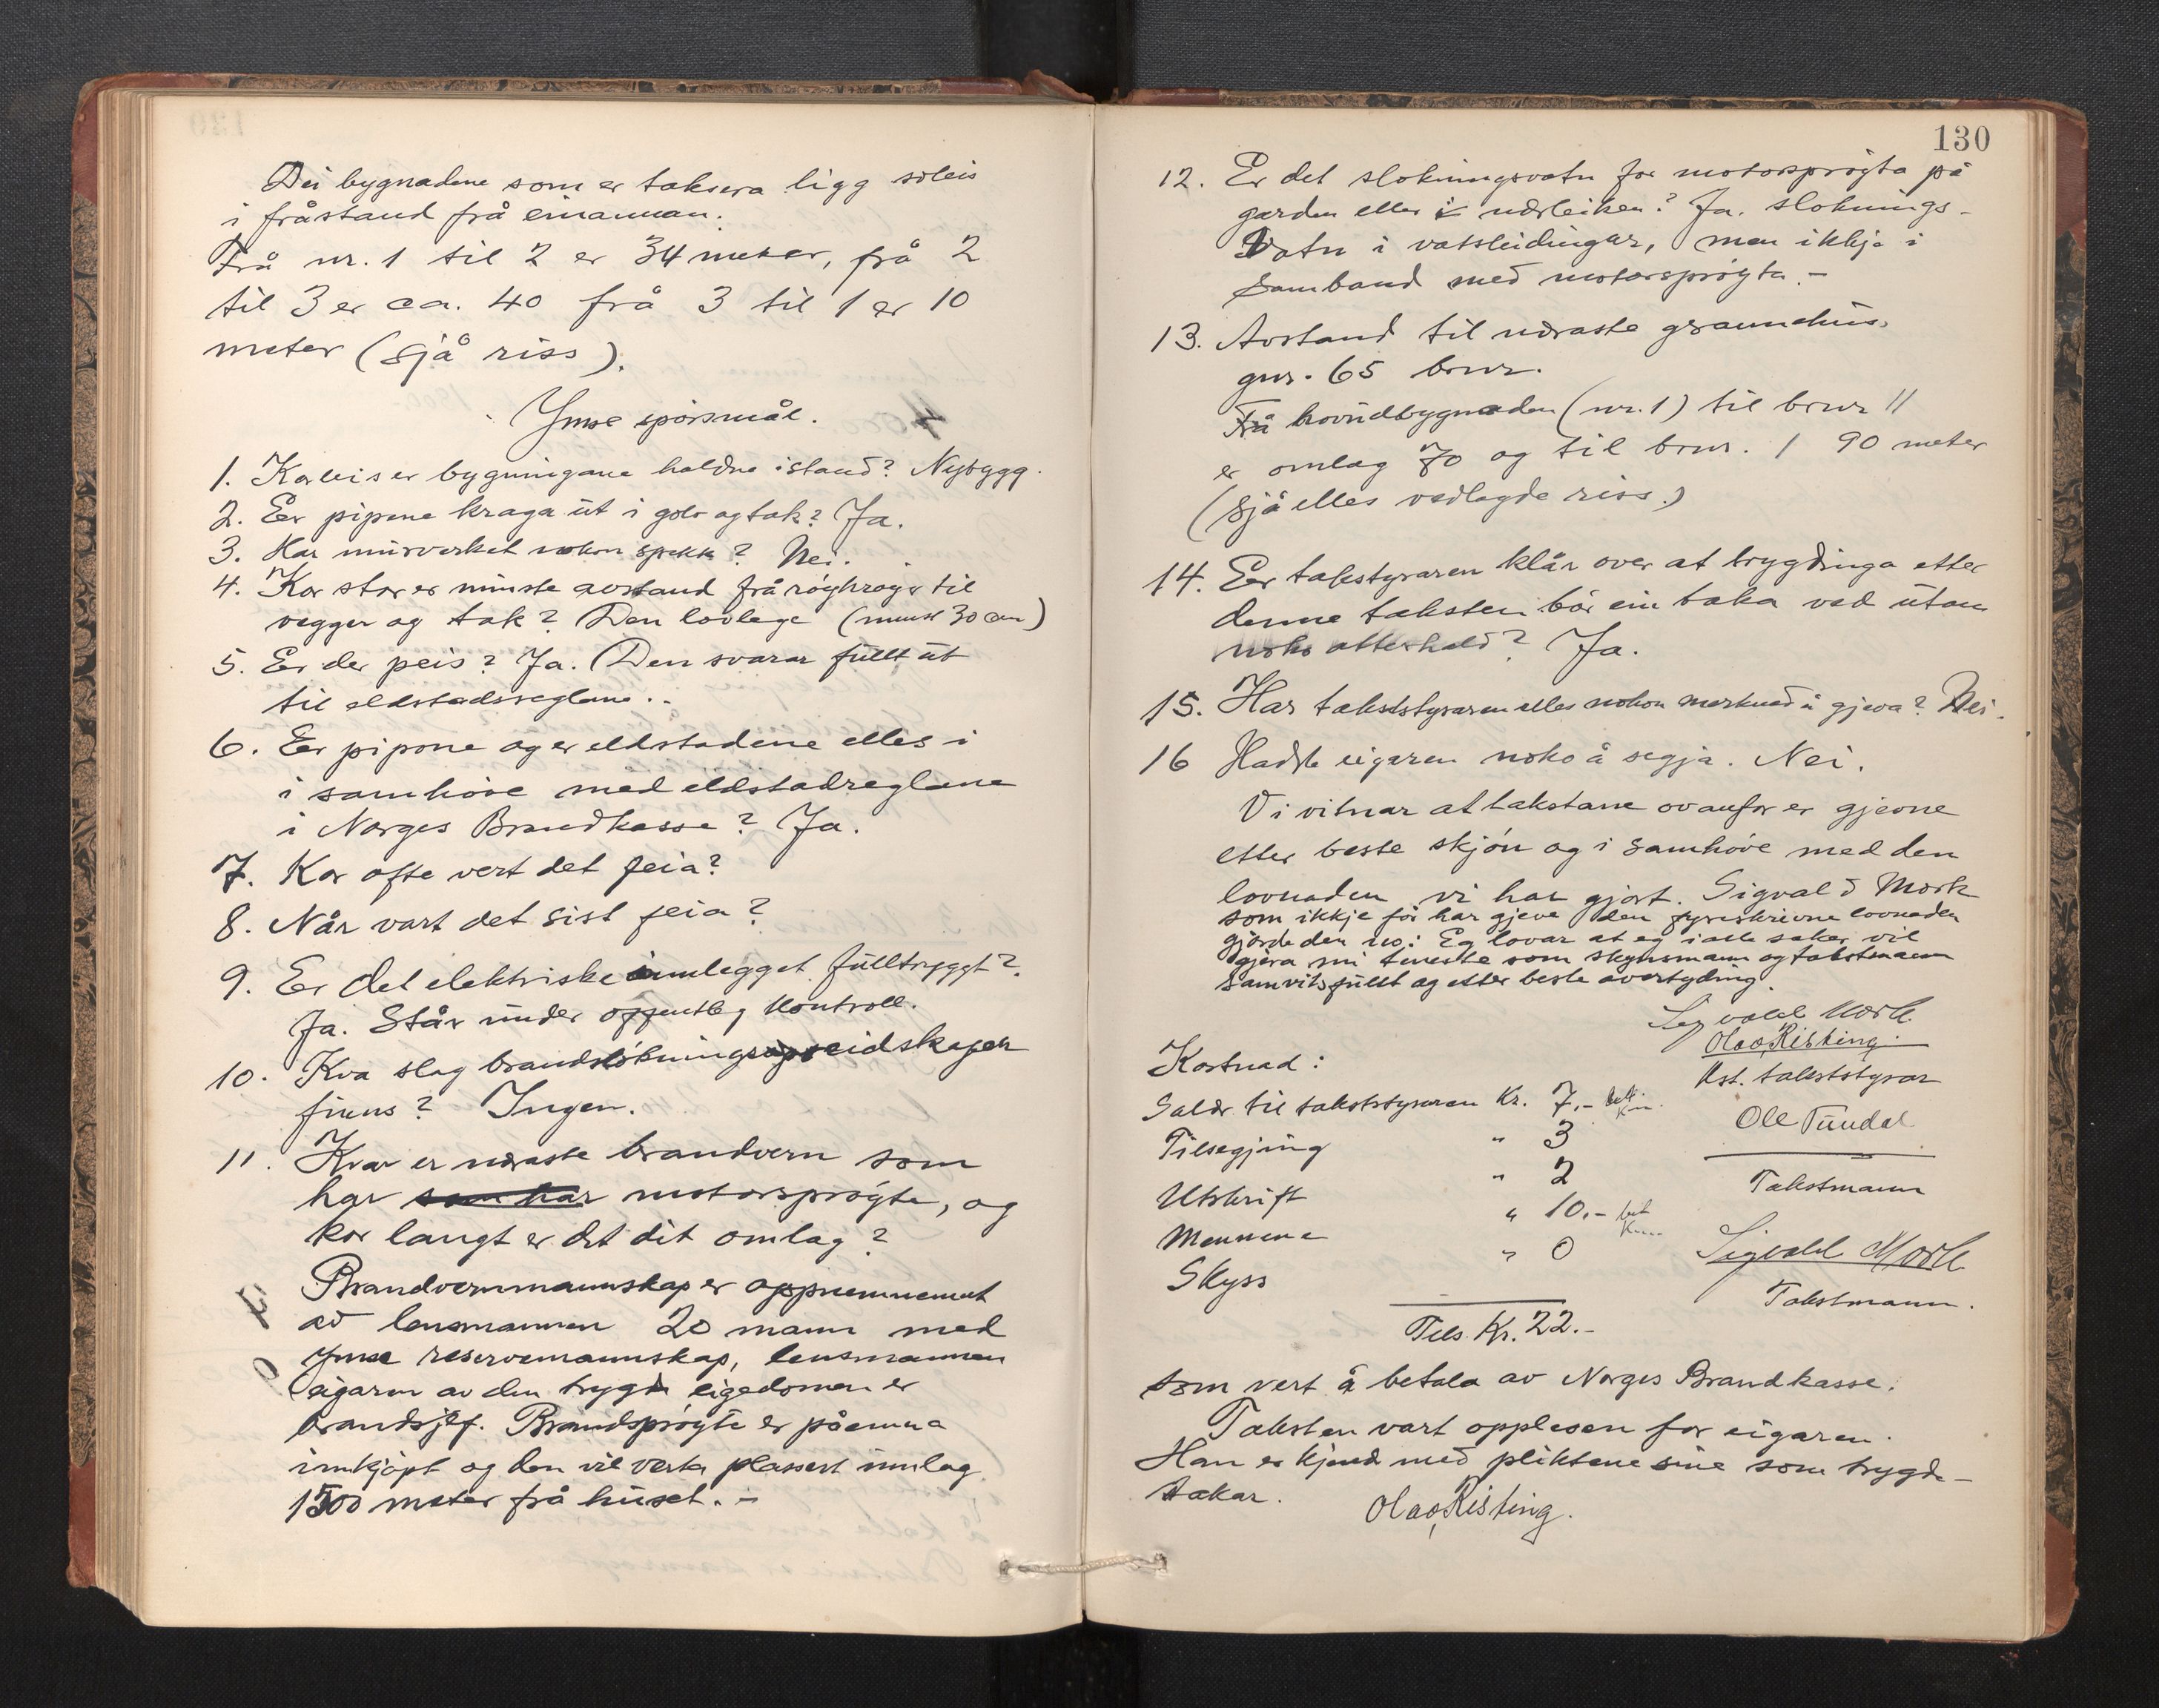 Dei bygnadene som er taksera ligg soleis
i fråstand frå einannan.
Frå nr. 1 til 2 er 34 meter, frå 2
til 3 er ca. 40 frå 3 til 1 er 10
meter (sjå riss).
Ymse spörsmål.
1. Korleis er bygningane haldne istand? Nybygg.
2. Eer pipene kraga ut i golv og tak? Ja.
3. Har murverket nokon sprekk? Nei.
4. Kor stor er minste avstand frå röykrøyr til
vegger og tak? Den lovlege (minst 30 cm)
5. Er der peis? Ja. Den svarar fullt ut
til eldstadsreglane.-
6. Eer pipone og er eldstadene elles i
i samhöve med eldstadreglane
i Norges Brandkasse? Ja.
7. Kor ofte vert det feia?
8. Når vart det sist feia?
9. Er det elektriske innlegget fulltryggt?
Ja. Står under offentleg kontroll.
10. Kva slag brandslökningsreidskaper
finns? Ingen.
11. Kvar er næraste brandvern som
har som har motorspröyte, og
kor langt er det dit omlag?
Brandvernmannskap er oppnemnemnt
av lensmannen 20 mann med
Ymse reservemannskap, lensmannen
eigaren av den trygda eigedomen er
brandsjef. Brandspröyte er påemna
innkjöpt og den vil verta plassert innlag
1500 meter frå huset.-
130
12. Er det slokningsvatn for motorspröyta på
garden eller i nærleiken? Ja. Sloknings-
Vatn i vatsleidingar, men ikkje i
Samband med motorspröyta.-
13. Avstand til næraste grannehus.
gnr. 65 brnr.
Frå hovudbygnaden (nr. 1) til brnr 11
er omlag 70 og til brnr. 1 90 meter
(sjå elles vedlagde riss.)
14. Eer takstyraren klår over at trygdinga etter
denne taksten bör ein taka ved utan
noko atterhald? Ja.
15. Har takststyraren elles nokon merknad å gjeva? Nei.
16 Hadde eigaren noko å segja. Nei.
Vi vitnar at takstane ovanfor er gjevne
etter beste skjön og i samhöve med den
lovnaden vi har gjort. Sigvald Mork
som ikkje för har gjeve den fyreskrivne lovnaden
gjorde den no: Eg lovar at eg i alle saker vil
gjera mi teneste som skynsmann og takstmann
samvitsfullt og etter beste overtyding.
Sigvald Mork.
Olav Risting.
Kst. takststyrar
Kostnad:
Salær til takststyraren Kr. 7.-
Tilsegjing " 3
Utskrift " 2
Mennene " 10.-
Skyss " 0
Ole Tündal
Takstmann
Sigvald Mork
Takstmann.
Tils. Kr. 22.-
som vert å betala av Norges Brandkasse.
Taksten vart opplesen for eigaren.
Han er kjend med pliktene sine som trygde-
takar.
Olav Risting.